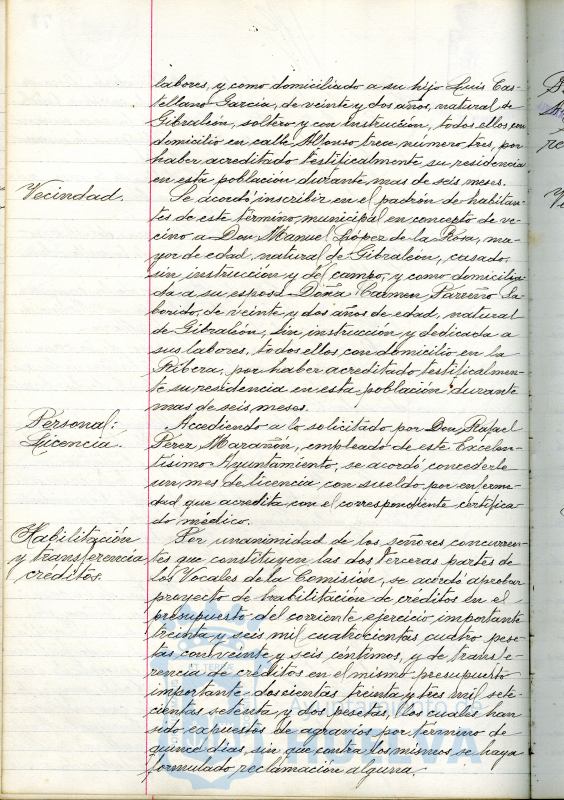 labores, y como domiciliado a su hijo Luis Cas-
tellano García, de veinte y dos años, natural de
Gibraleón, soltero y con instrucción, todos ellos con
domicilio en calle Alfonso trece número tres, por
haber acreditado testificalmente su residencia
en esta población durante mas de seis meses.
Vecindad.
Se acordó inscribir en el padrón de habitan-
tes de este término municipal en concepto de ve-
cino a Don Manuel López de la Rosa, ma-
yor de edad, natural de Gibraleón, casado,
sin instrucción y del campo, y como domicilia-
da a su esposa Doña Carmen Parreño Sa-
borido, de veinte y dos años de edad, natural
de Gibraleón, sin instrucción y dedicada a
sus labores, todos ellos con domicilio en la
Ribera, por haber acreditado testificalmen-
te su residencia en esta población durante
mas de seis meses.
Personal:
Licencia.
Accediendo a lo solicitado por Don Rafael
Pérez Marañón, empleado de este Excelen-
tísimo Ayuntamiento, se acordó concederle
un mes de licencia con sueldo, por enferme-
dad que acredita con el correspondiente certifica-
do médico.
Habilitación
y transferencia
creditos.
Por unanimidad de los señores concurren-
tes que constituyen las dos terceras partes de
los Vocales de la Comisión, se acordó aprobar
proyecto de habilitación de créditos en el
presupuesto del corriente ejercicio importante
treinta y seis mil cuatrocientas cuatro pese-
tas con veinte y seis céntimos, y de transfe-
rencia de créditos en el mismo presupuesto
importante doscientas treinta y tres mil sete-
cientas setenta y dos pesetas, los cuales han
sido expuestos de agravios por termino de
quince días, sin que contra los mismos se haya
formulado reclamación alguna.
Ayuntamiento de
HUELVA